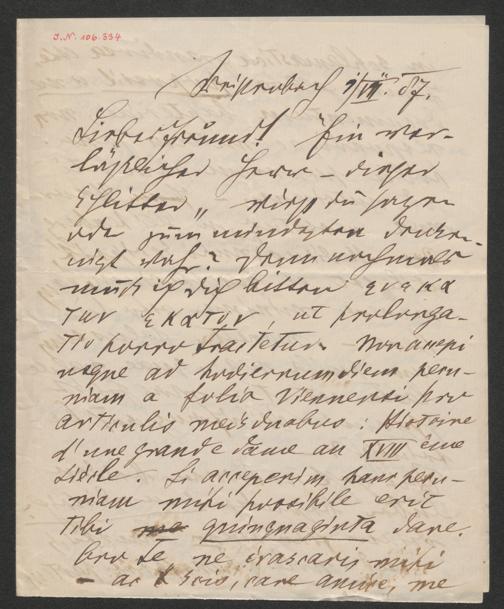 J.N. 106.334
Weissenbach 9/VII. 87.
Lieber Freund! "Ein ver-
lässlicher Herr – dieser
Schlitter", wirst du sagen
oder zum mindesten denken,
nicht wahr? Denn nochmals
muß ich dich bitten ενεκα
των εκατον, ut prolonga-
tio porro tractetur. Non accepi
usque ad hodiernum diem pecu-
niam a folio Viennensi pro
articulis meis duobus: Histoire
d'une grande dame au XVIII ème
siècle. Si acceperim hanc pecu-
niam mihi possibile erit
tibi quinquaginta dare.
Oro te ne irascaris mihi
– ac scio, care amice, me